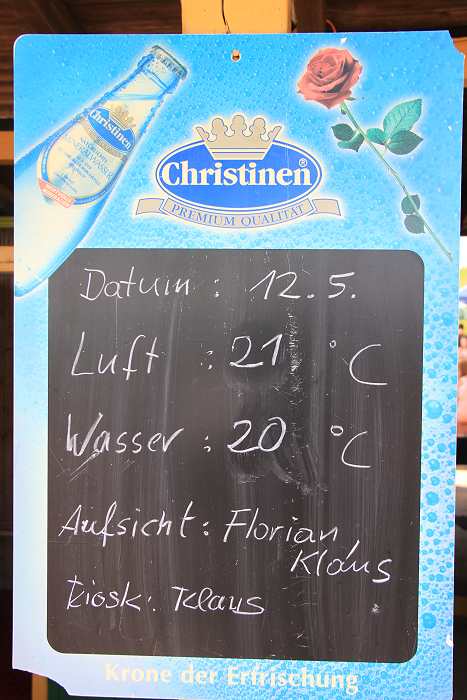 Christinen
Christinen®
PREMIUM QUALITÄT
Datum : 12.5.
Luft : 21 °C
Wasser : 20 °C
Aufsicht: Florian
Klaus
Kiosk: Klaus
Krone der Erfrischung